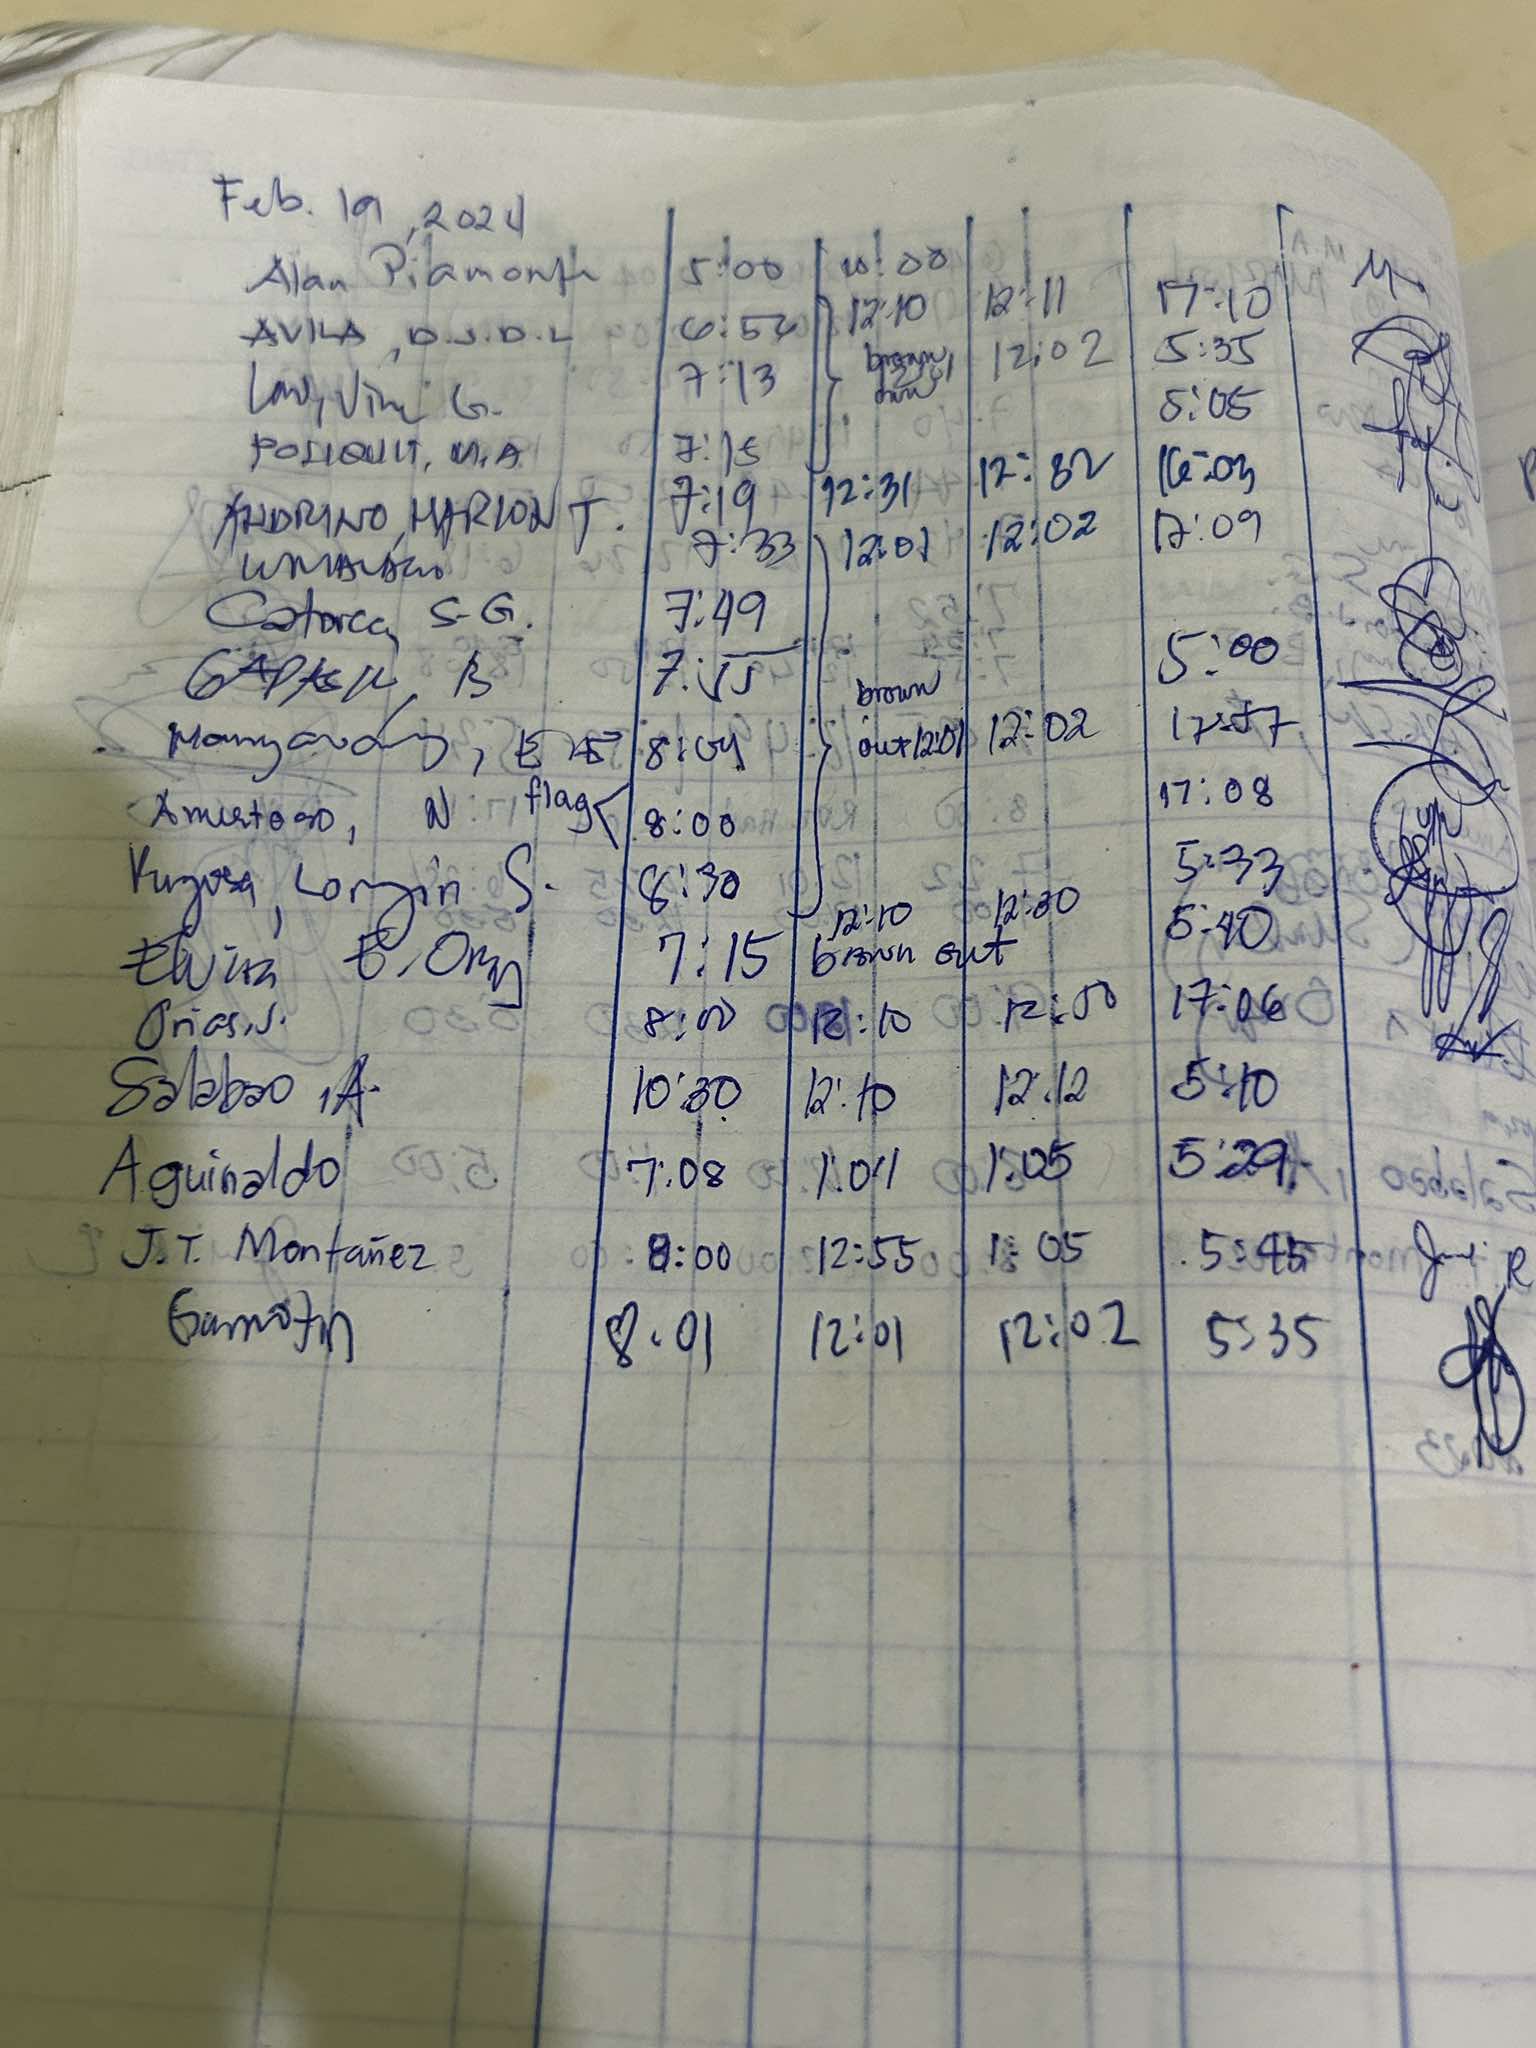 Feb. 19, 2024
Alan Piamonte 5:00 10:00
AVILA, D.J.D.L 6:54 12:10 12:11 17:10
G. 7:13 brown 12:01 out 12:02 5:35
POLIQUIT, M.A 7:15 5:05
ANDRINO, MARION T. 7:19 12:31 12:32 16:03
7:33 12:01 12:02 17:09
Catorce, S.G. 7:49
B 7:55 5:00
8:04 brown out 12:01 12:02 17:57
Amistoso, N flag 8:00 17:08
S. 8:30 5:33
Elvira E. 7:15 12:10 brown out 12:30 5:40
Orias, J. 8:00 12:10 12:50 17:06
Salabao, A. 10:30 12:10 12:12 5:10
Aguinaldo 7:08 1:04 1:05 5:29
J.T. Montañez 8:00 12:55 1:05 5:45
8:01 12:01 12:02 5:35